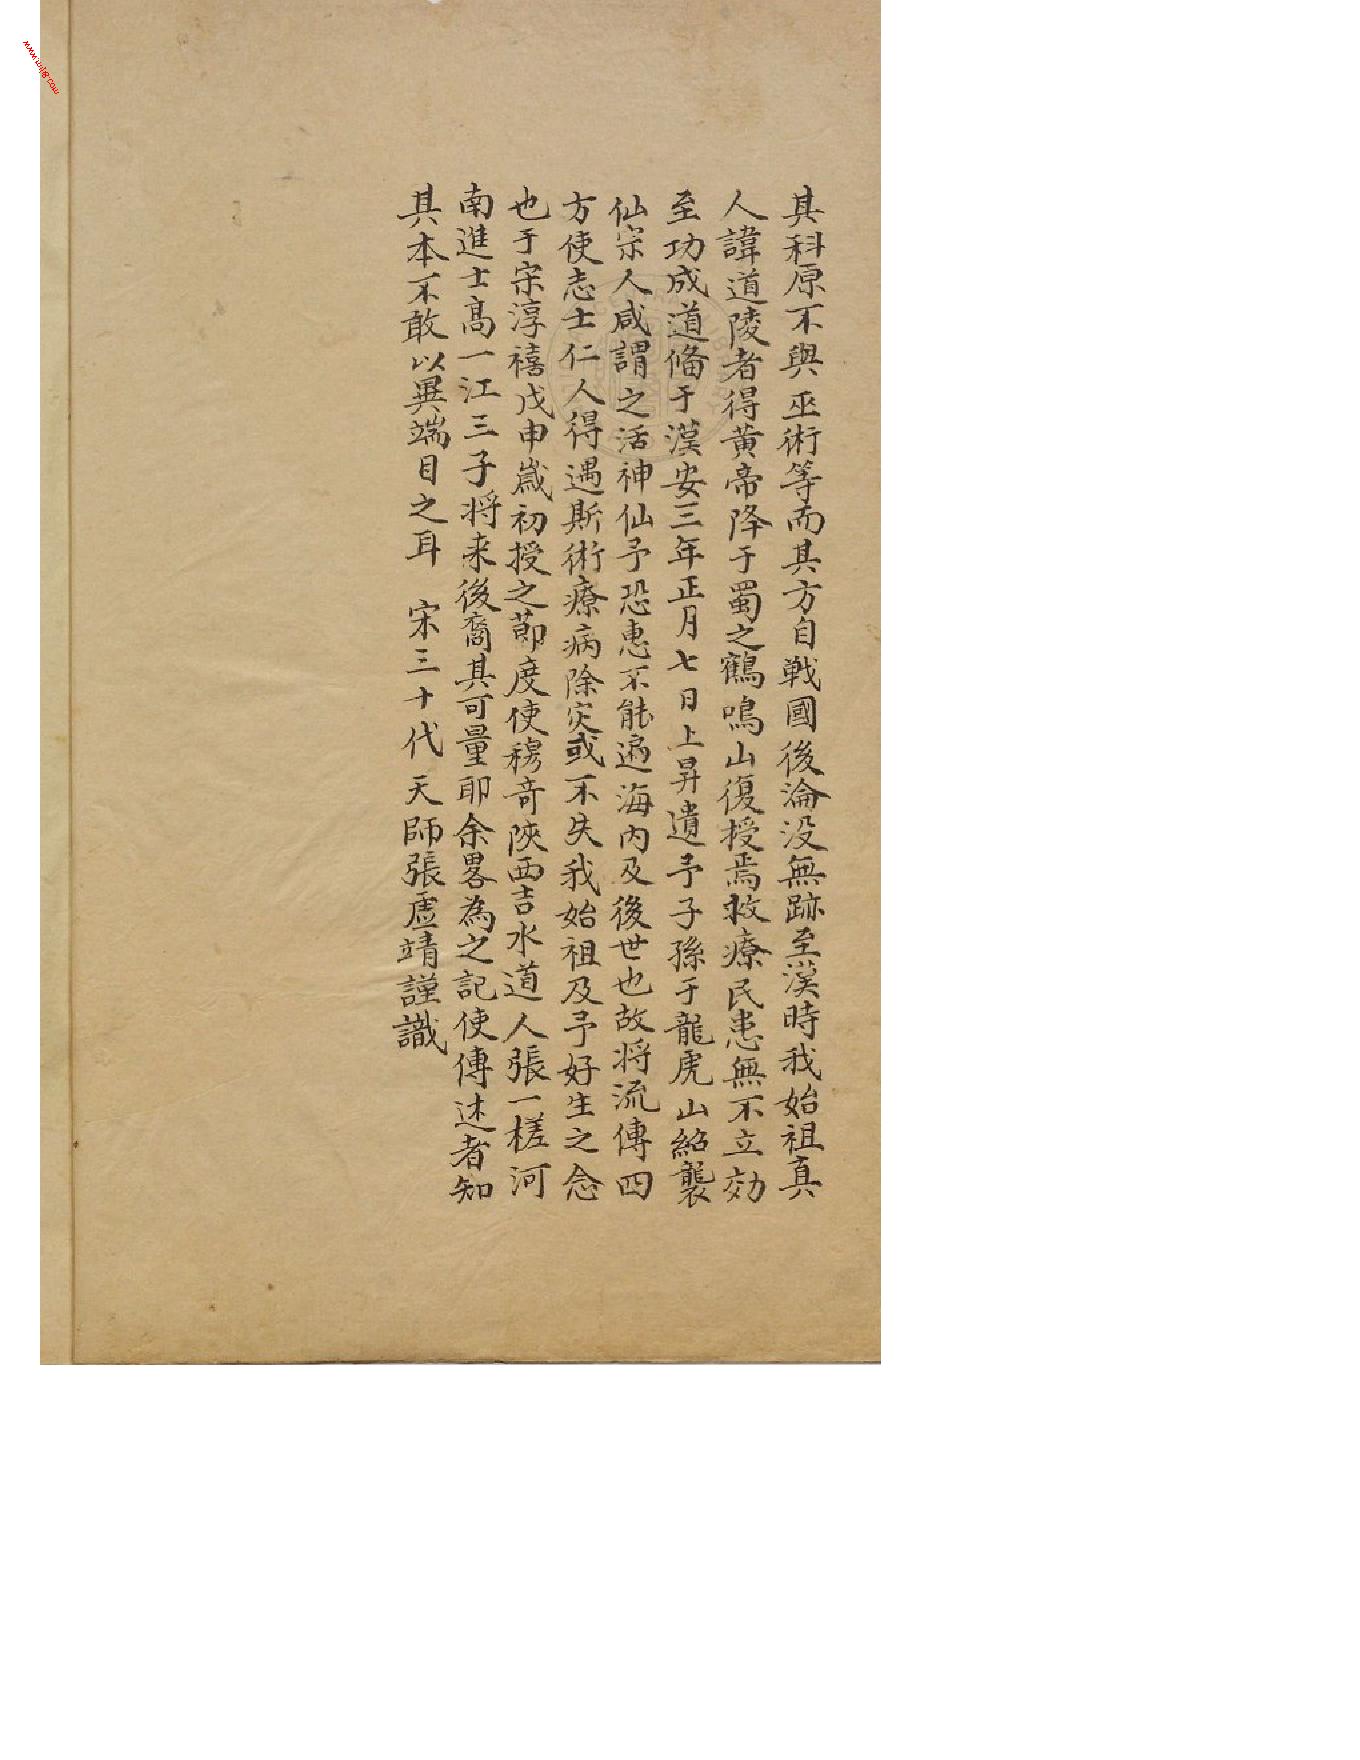 其科原不與巫術等而其方自戦國後淪没無跡至漢時我始祖真
人諱道陵者得黄帝降于蜀之鶴鳴山復授焉救療民患無不立効
至功成道俻于漢安三年正月七日上昇遺予子孫于龍虎山紹襲
仙宗人咸謂之活神仙予恐惠不能遍海内及後世也故将流傳四
方使志士仁人得遇斯術療病除灾或不失我始祖及予好生之念
也于宋淳禧戊申嵗初授之節度使穆竒陜西吉水道人張一槎河
南進士髙一江三子将来後裔其可量耶余畧為之記使傳述者知
其本不敢以異端目之耳 宋三十代天師張虚靖謹識